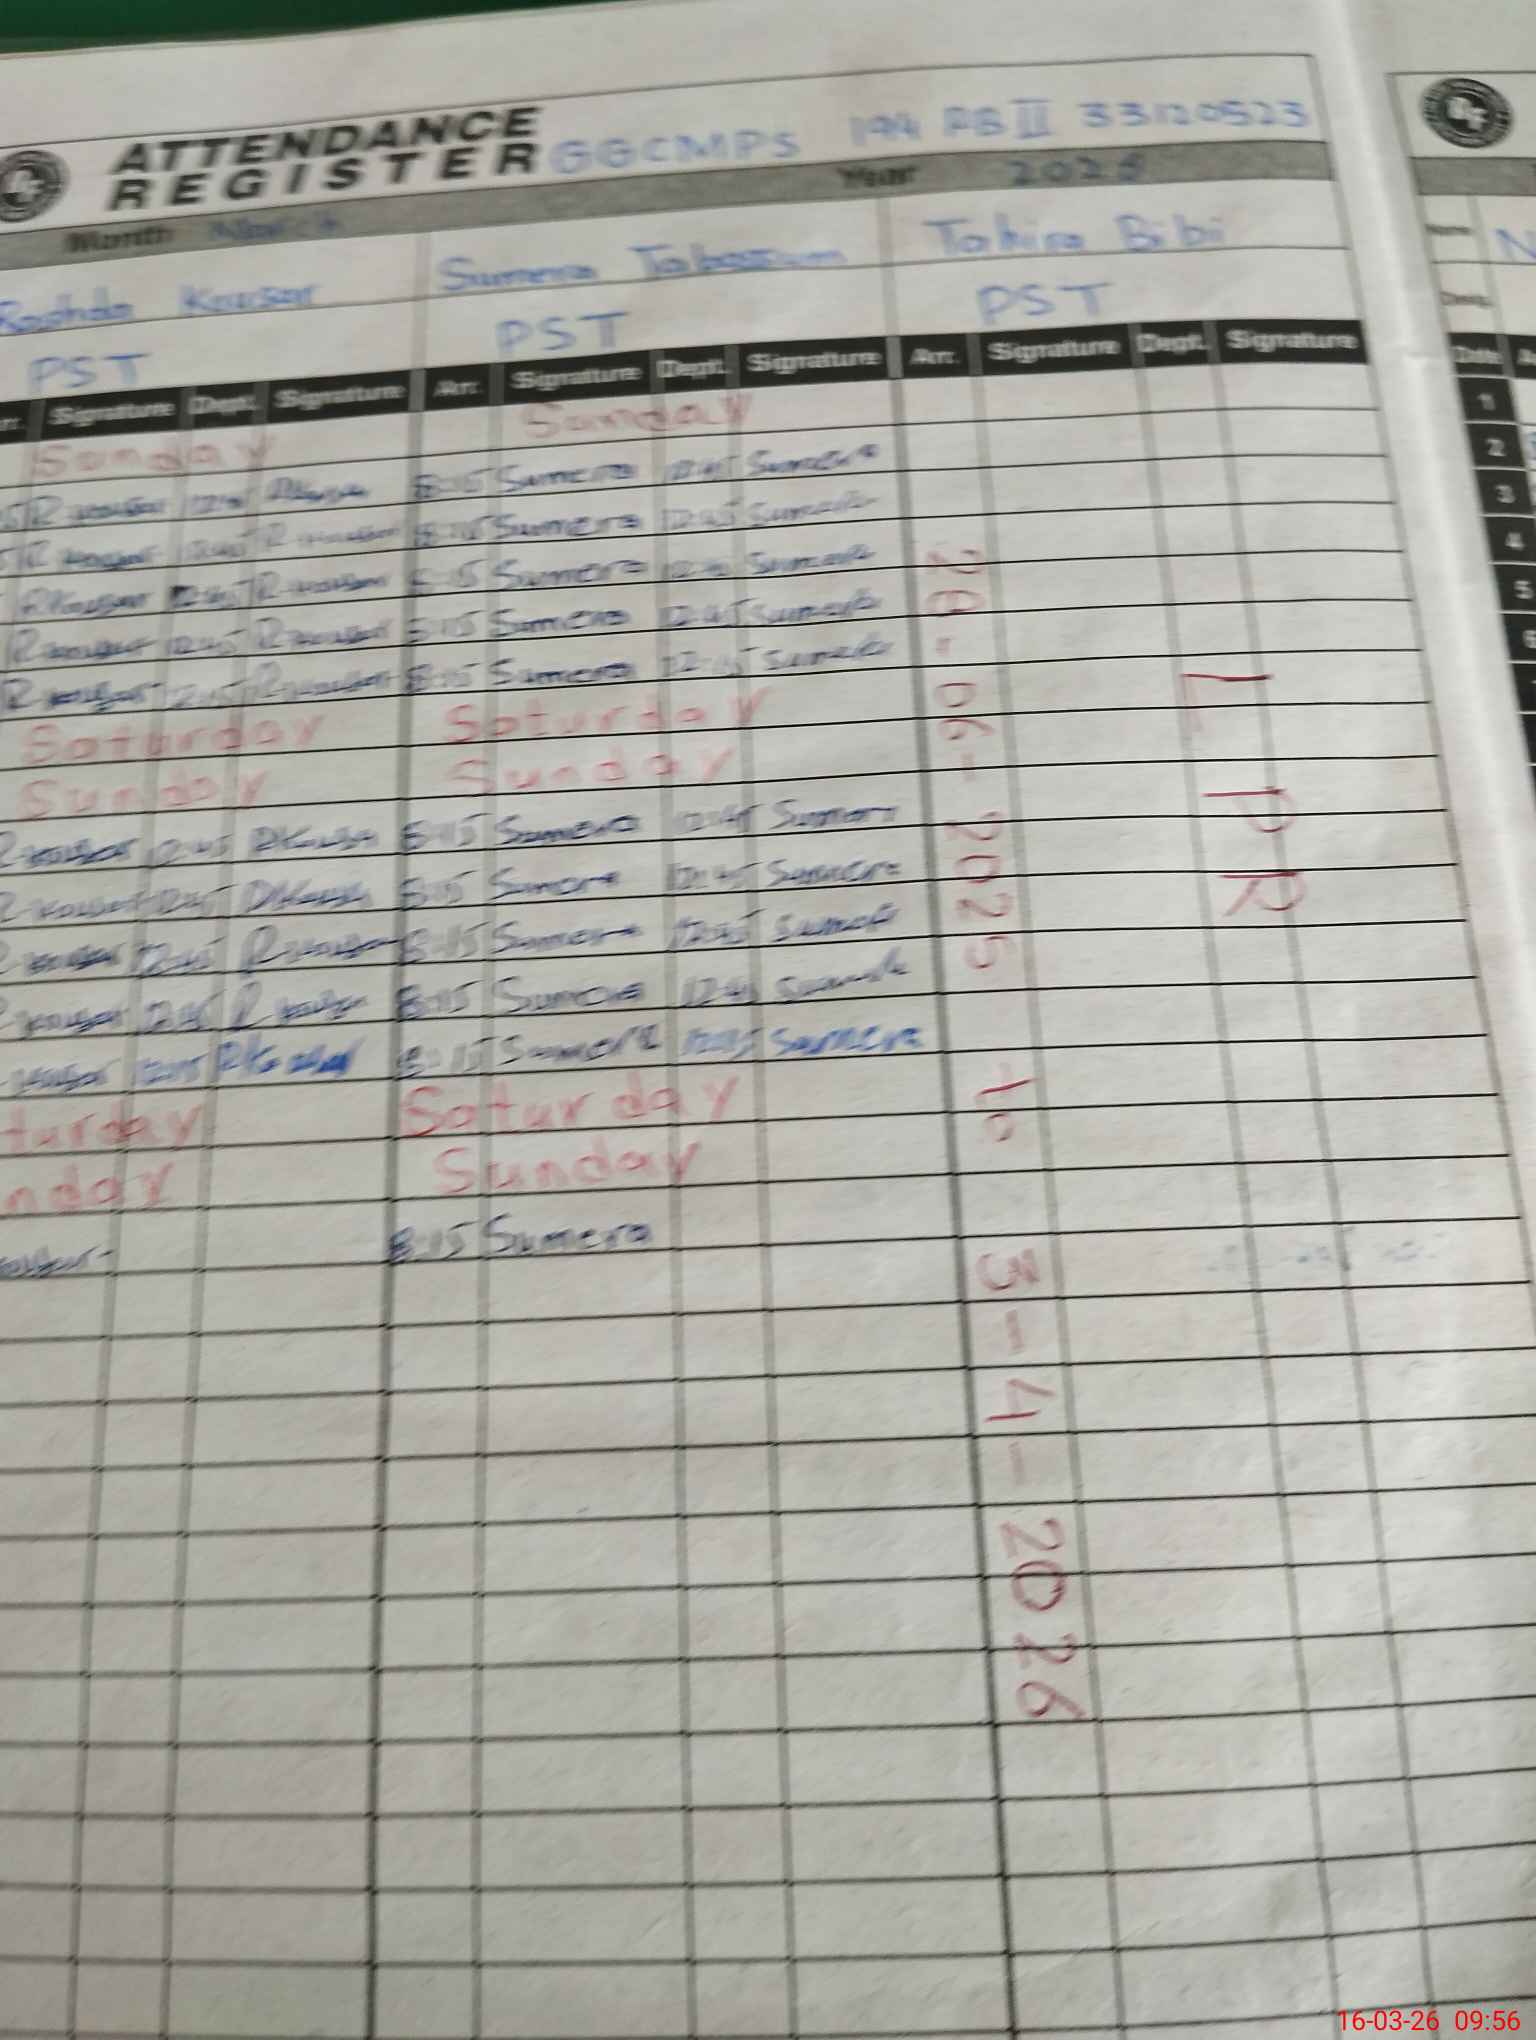 ATTENDANCE
REGISTER GGCMPS 194 RB II 33120523
Month March Year
Kausar Sumera Tabassum Tahira Bibi
PST PST PST
Signature Dept. Signature Arr. Signature Dept. Signature Arr. Signature Dept. Signature
Sunday Sunday
8:15 Sumera 12:45 Sumera
R kausar 12:45 R kausar 8:15 Sumera 12:45 Sumera
R Kausar 12:45 R kausar 8:15 Sumera 12:45 Sumera
R kausar 12:45 R kausar 8:15 Sumera 12:45 Sumera
R kausar 12:45 R kausar 8:15 Sumera 12:45 Sumera
Saturday Saturday
Sunday Sunday
kausar 12:45 8:15 Sumera 12:45 Sumera
kausar 12:45 8:15 Sumera 12:45 Sumera
kausar 12:45 R kausar 8:15 Sumera 12:45 Sumera
kausar 12:45 R kausar 8:15 Sumera 12:45 Sumera
kausar 8:15 Sumera Sumera
turday Saturday
nday Sunday
8:15 Sumera
-06-2025 to 3-4-2026
L PR
Date
1
2
3
4
5
6
16-03-26 09:56